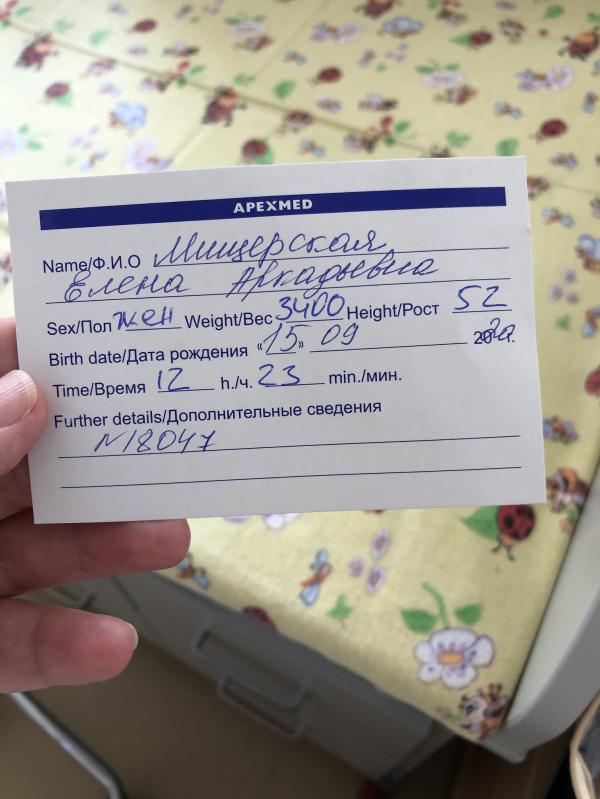 APEXMED
Name/Ф.И.О Мищерская
Елена Аркадьевна
Sex/Пол жен Weight/Вес 3400 Height/Рост 52
Birth date/Дата рождения «15» 09 2020г.
Time/Время 12 h./ч. 23 min./мин.
Further details/Дополнительные сведения
N18047